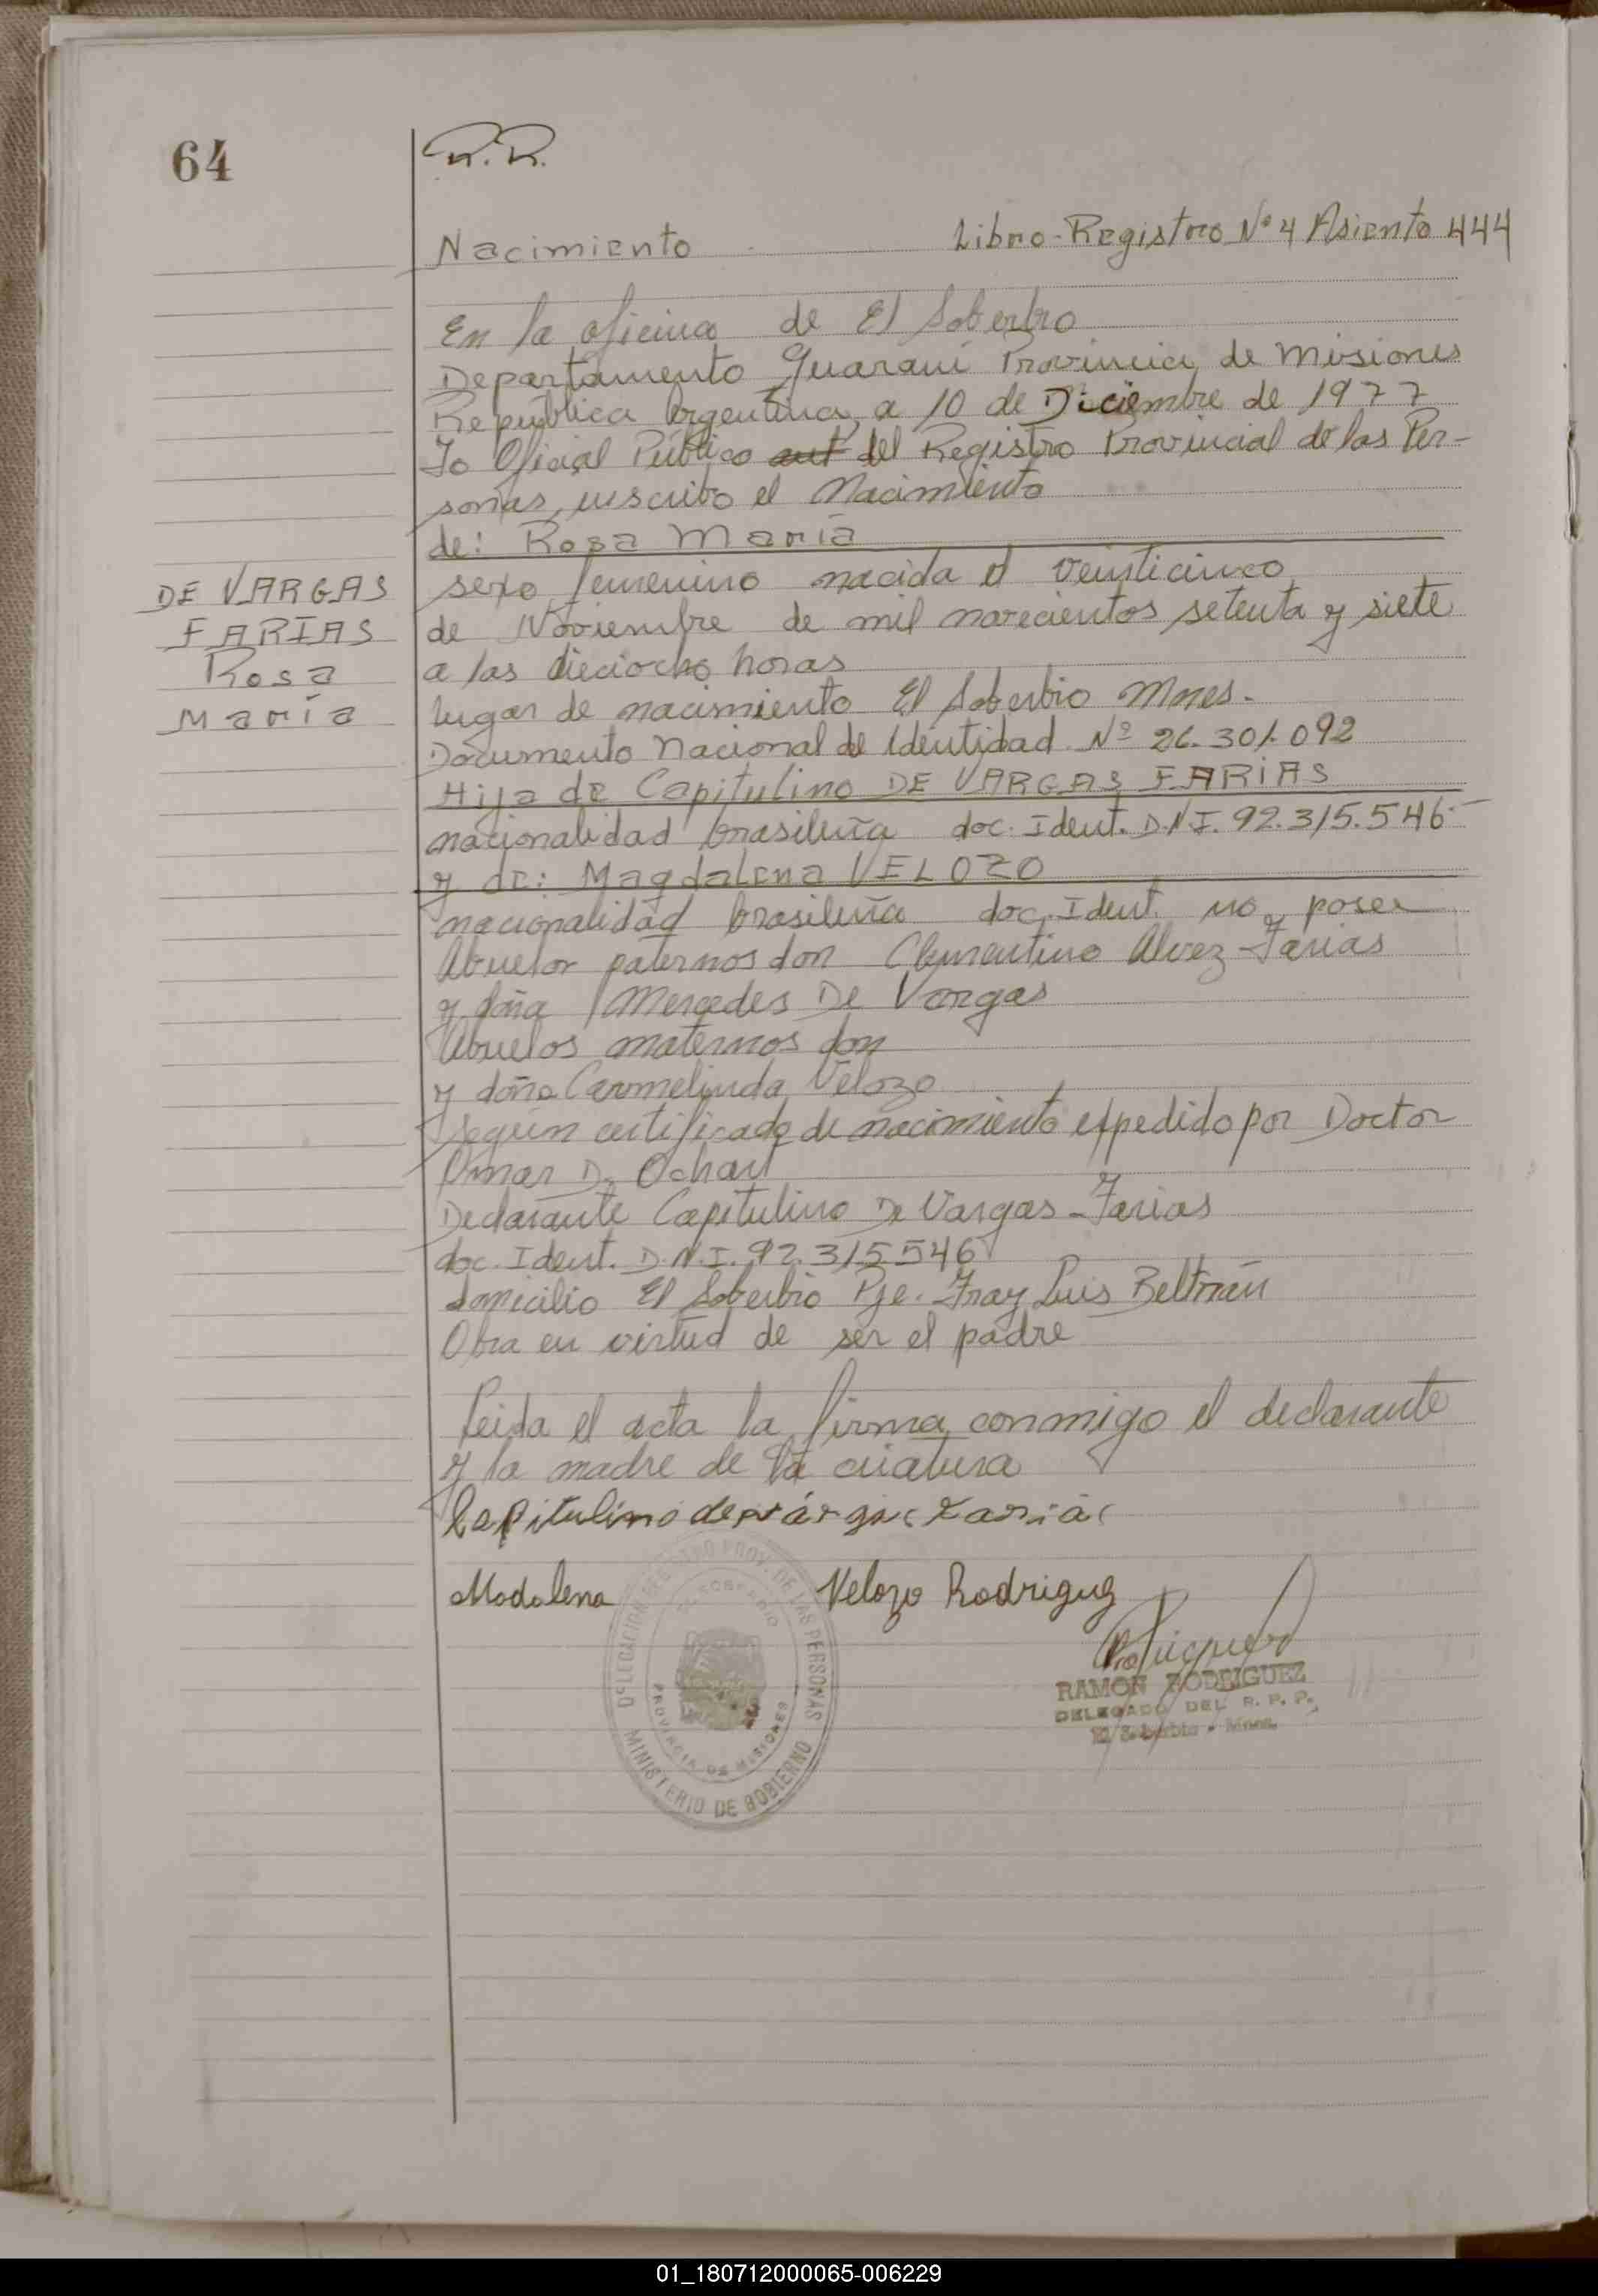 64
R.R.
Nacimiento Libro-Registro Nº 4 Asiento 444
En la oficina de El Soberbio
Departamento Guaraní Provincia de Misiones
República Argentina, a 10 de Diciembre de 1977
Yo Oficial Público aut del Registro Provincial de las Per-
sonas, inscribo el Nacimiento
de: Rosa María
DE VARGAS
FARIAS
Rosa
María
sexo femenino nacida el veinticinco
de Noviembre de mil novecientos setenta y siete
a las dieciocho horas
lugar de nacimiento El Soberbio Mnes.
Documento Nacional de Identidad Nº 26.301.092
Hija de Capitulino DE VARGAS FARIAS
nacionalidad brasileña doc. Ident. D.N.I. 92.315.546-
y de: Magdalena VELOZO
nacionalidad brasileña doc. Ident. no posee
Abuelos paternos don Clementino Alvez-Farias
y doña Mercedes De Vargas
Abuelos maternos don
y doña Carmelinda Velozo
según certificado de nacimiento expedido por Doctor
Omar D.
Declarante Capitulino De Vargas-Farias
doc. Ident. D.N.I. 92.315.546
domicilio El Soberbio Pje. Fray Luis Beltrán
Obra en virtud de ser el padre
Leida el acta la firma conmigo el declarante
y la madre de la criatura
Capitulino de vargas Farias
Madalena Velozo Rodriguez
DELEGACION REGISTRO PROV. DE LAS PERSONAS
EL SOBERBIO
PROVINCIA DE MISIONES
MINISTERIO DE GOBIERNO
RAMON RODRIGUEZ
DELEGADO DEL R. P. P.
El Soberbio - Mnes.
01_180712000065-006229